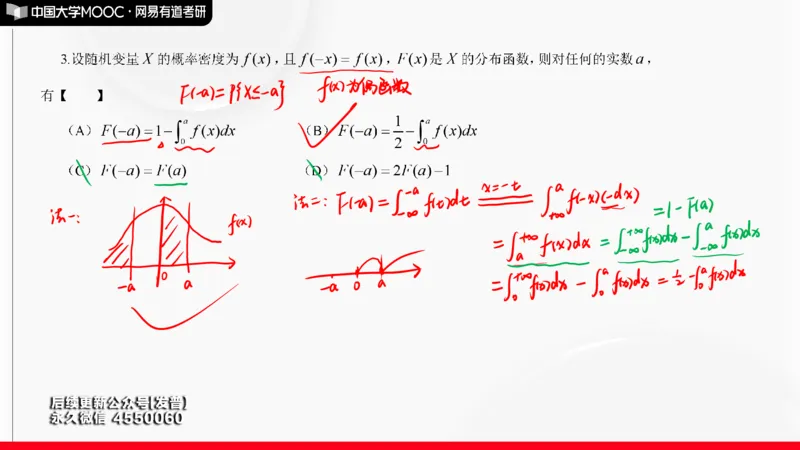 中国大学MOOC·网易有道考研
3.设随机变量 X 的概率密度为 f(x),且 f(−x) = f(x),F(x)是 X 的分布函数,则对任何的实数 a,
有【 】 F(-a)=P{X≤-a} f(x)为偶函数
(A) F(−a) = 1−∫₀ᵃ f(x)dx (B) F(−a) = 1/2 −∫₀ᵃ f(x)dx
(C) F(−a) = F(a) (D) F(−a) = 2F(a)−1
法一: f(x) -a 0 a
法二: F(-a)=∫_{-∞}^{-a} f(t)dt x=-t ∫_{+∞}^{a} f(-x)(-dx)
=1-F(a)
=∫_a^{+∞} f(x)dx =∫_{-∞}^{+∞} f(x)dx-∫_{-∞}^{a} f(x)dx
-a 0 a
=∫_0^{+∞} f(x)dx-∫_0^a f(x)dx=1/2-∫_0^a f(x)dx
后续更新公众号[发普]
永久微信 4550060